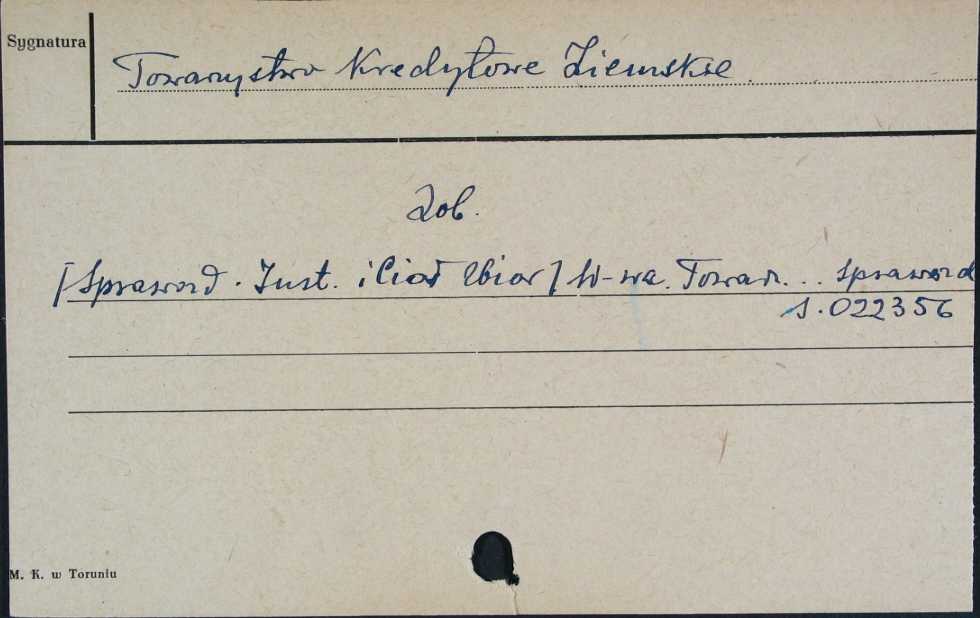 Sygnatura
Towarzystwo Kredytowe Ziemskie
Zob.
[Sprawozd. Inst. i Ciał Zbior] W-wa. Towarz... sprawozd
S.022356
M. K. w Toruniu